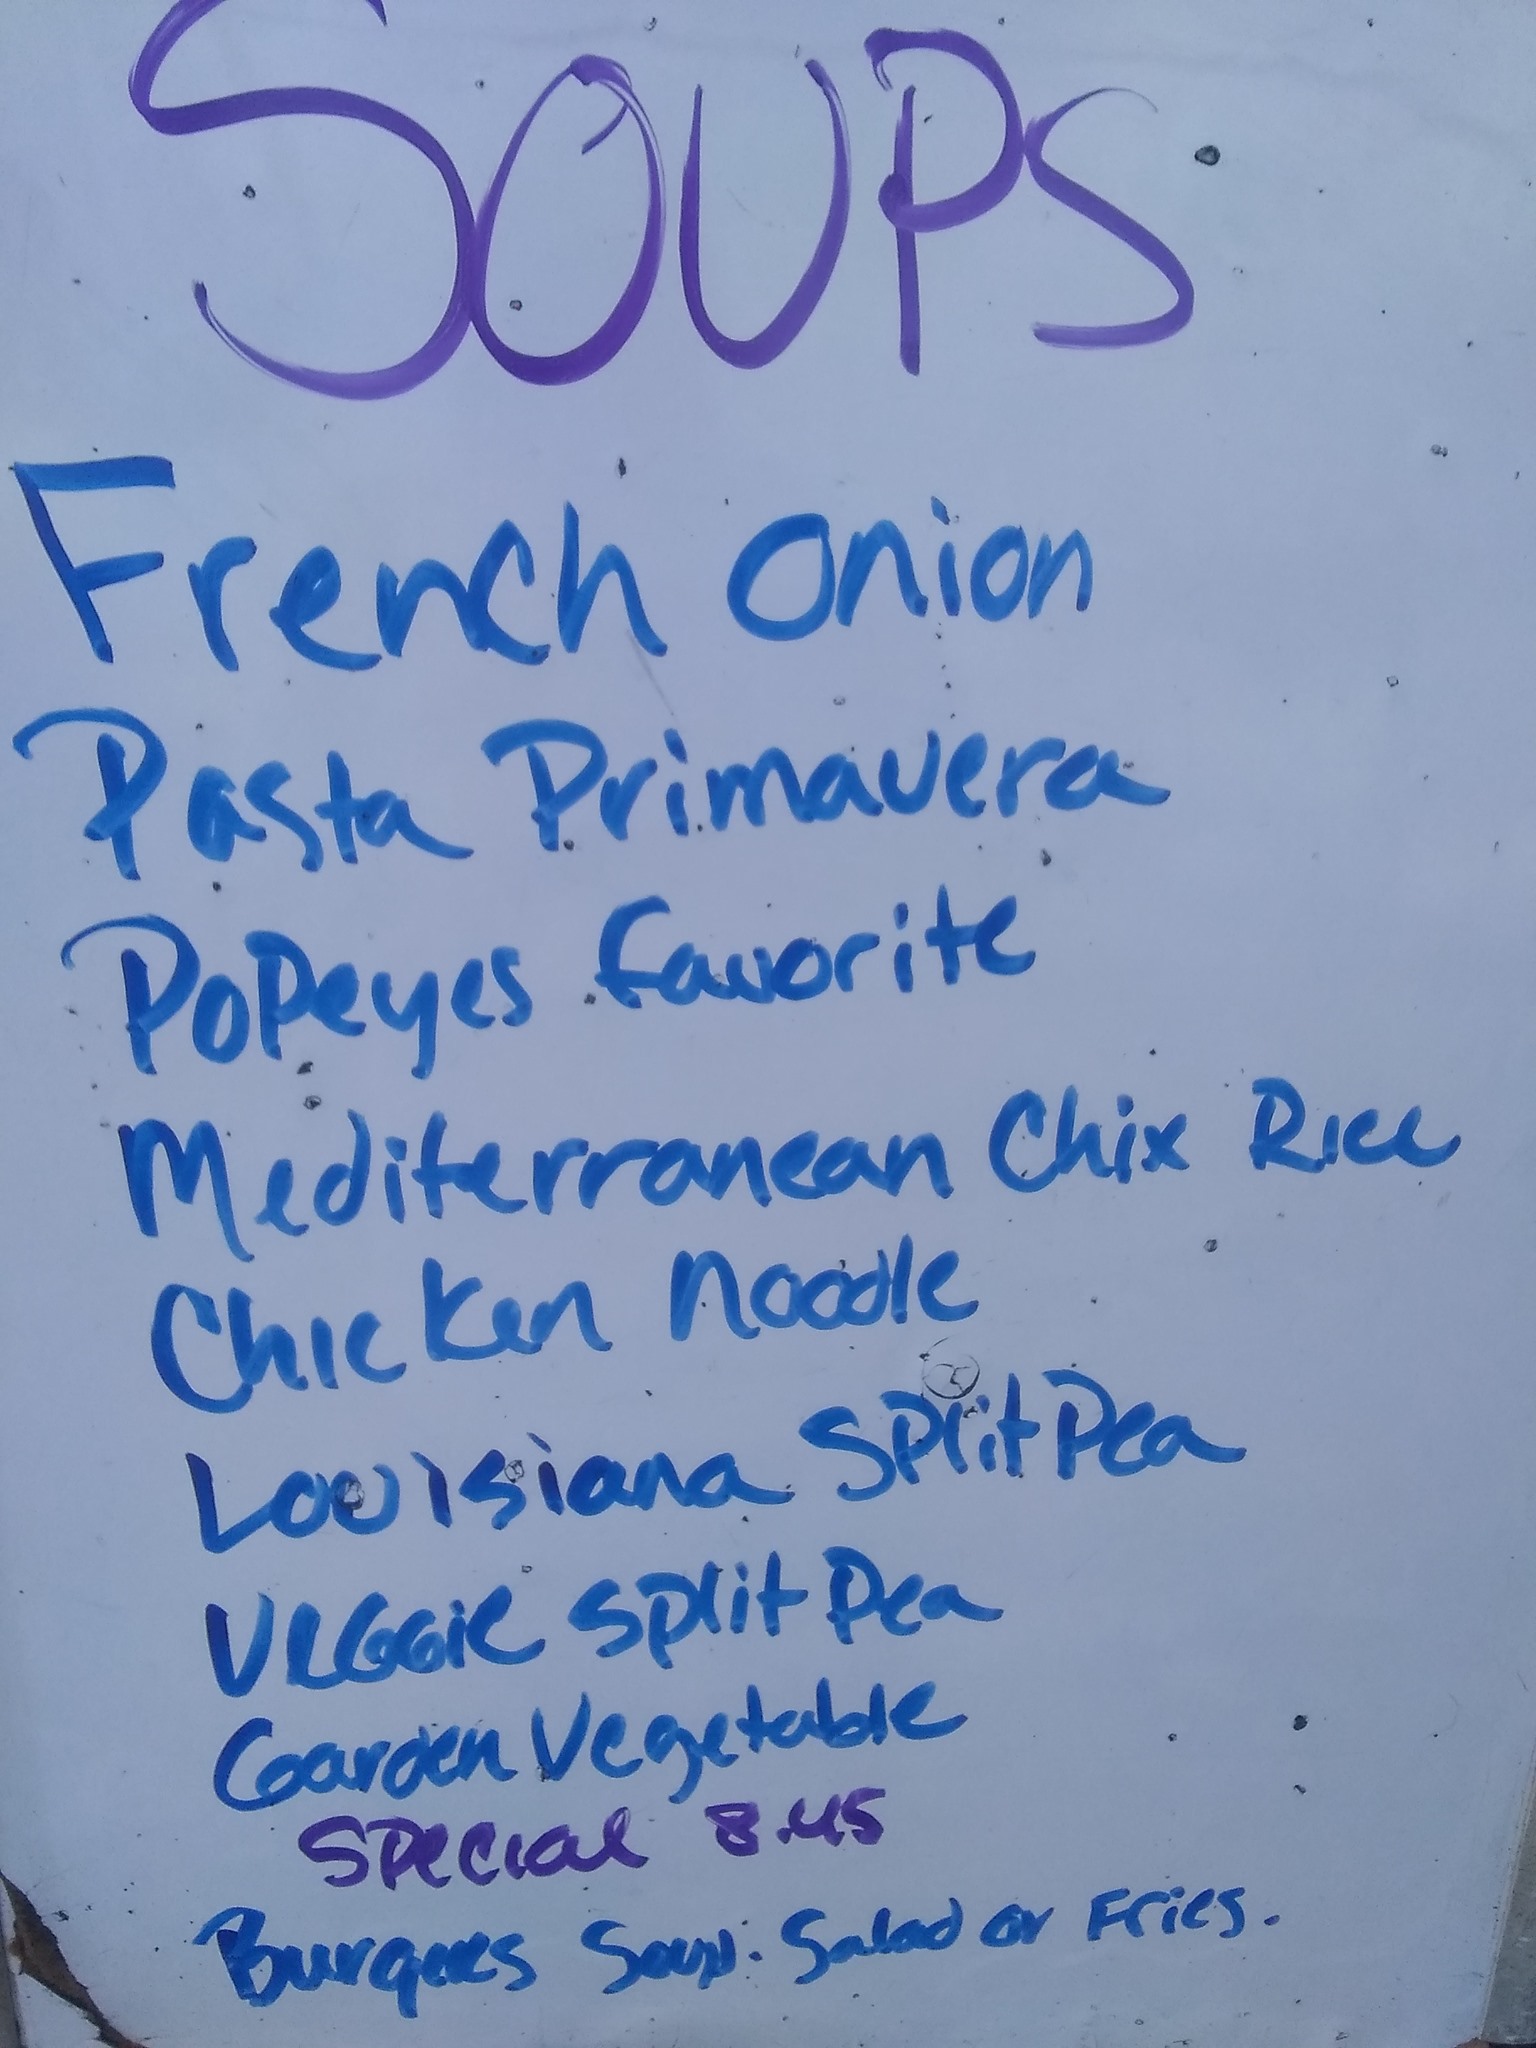 SOUPS
French Onion
Pasta Primavera
Popeyes Favorite
Mediterranean Chix Rice
Chicken Noodle
Louisiana Split Pea
Veggie Split Pea
Garden Vegetable
Special 8.45
Soup. Salad or Fries.